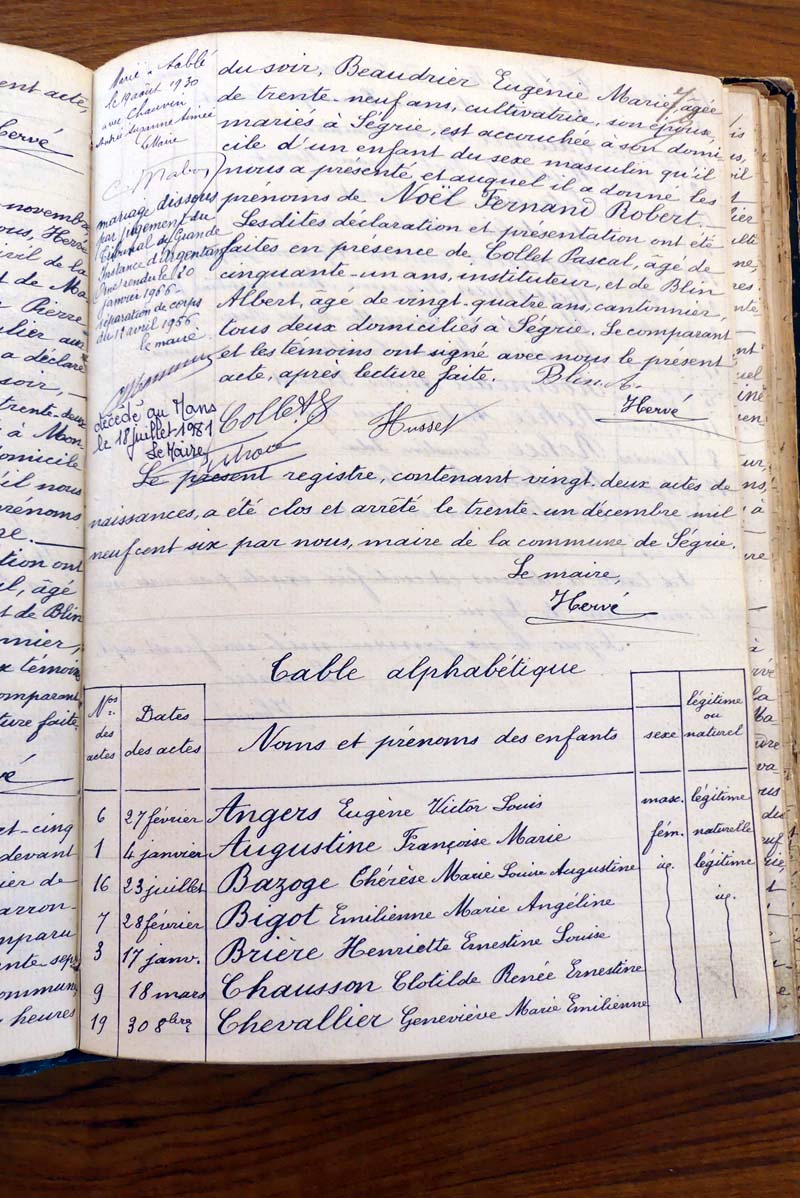 ent acte,
Hervé
novembre
ous, Hervé
ivil de la
et de Ma
Pierre
ulier, aux
a déclaré
soir, —
trente-deux
i à Mon
domicile
'il nous
prénoms
re. —
tion ont
l, âgé
t de Blin
nnier,
x témoins
omparant
ture faite.
vé
gt-cinq
devant
ier de
arron-
mparu
ente-sept
commune
heures
Marié à Sablé
le 19 août 1930
avec Chauvin
Andrée Suzanne Aimée
Le Maire
mariage dissous
par jugement du
Tribunal de Grande
Instance d'Argentan
Orne rendu le 20
janvier 1966
séparation de corps
du 19 avril 1956
le maire
décédé au Mans
le 18 juillet 1981
Le Maire,
du soir, Beaudrier Eugénie Marie, âgée
de trente-neuf ans, cultivatrice, son épouse,
mariés à Ségrie, est accouchée à son domi
cile d'un enfant du sexe masculin qu'il
nous a présenté et auquel il a donné les
prénoms de Noël Fernand Robert. —
Lesdites déclaration et présentation ont été
faites en présence de Collet Pascal, âgé de
cinquante-un ans, instituteur, et de Blin
Albert, âgé de vingt-quatre ans, cantonnier,
tous deux domiciliés à Ségrie. Le comparant
et les témoins ont signé avec nous le présent
acte, après lecture faite. Blin A.
Collet Husset Hervé
Le présent registre, contenant vingt-deux actes de
naissances, a été clos et arrêté le trente-un décembre mil
neuf cent six par nous, maire de la commune de Ségrie.
Le maire,
Hervé
Table alphabétique
Nos des actes Dates des actes Noms et prénoms des enfants sexe légitime ou naturel
6 27 février Angers Eugène Victor Louis masc. légitime
1 4 janvier Augustine Françoise Marie fém. naturelle
16 23 juillet Bazoge Thérèse Marie Louise Augustine id. légitime
7 28 février Bigot Emilienne Marie Angéline id.
3 17 janv. Brière Henriette Ernestine Louise
9 18 mars Chausson Clotilde Renée Ernestine
19 30 8bre Chevallier Geneviève Marie Emilienne